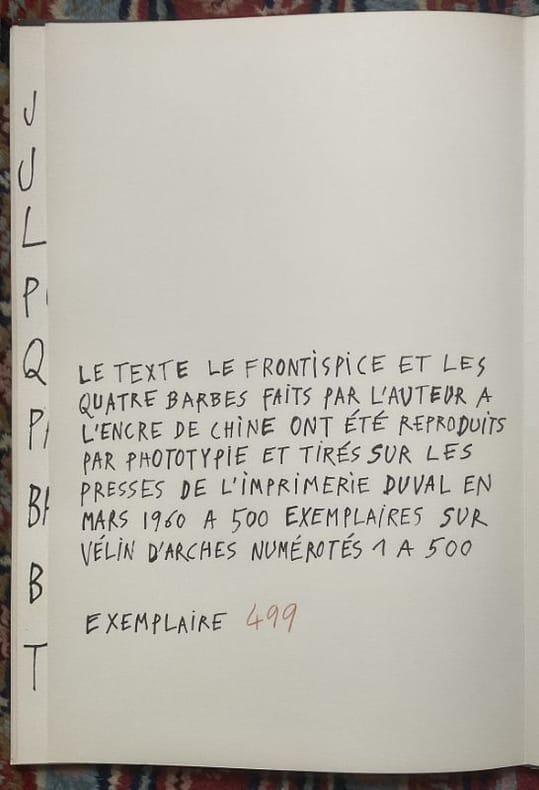 J
JUL
P
Q
P
B
B
T
LE TEXTE LE FRONTISPICE ET LES
QUATRE BARBES FAITS PAR L'AUTEUR A
L'ENCRE DE CHINE ONT ÉTÉ REPRODUITS
PAR PHOTOTYPIE ET TIRÉS SUR LES
PRESSES DE L'IMPRIMERIE DUVAL EN
MARS 1960 A 500 EXEMPLAIRES SUR
VÉLIN D'ARCHES NUMÉROTÉS 1 A 500
EXEMPLAIRE 499